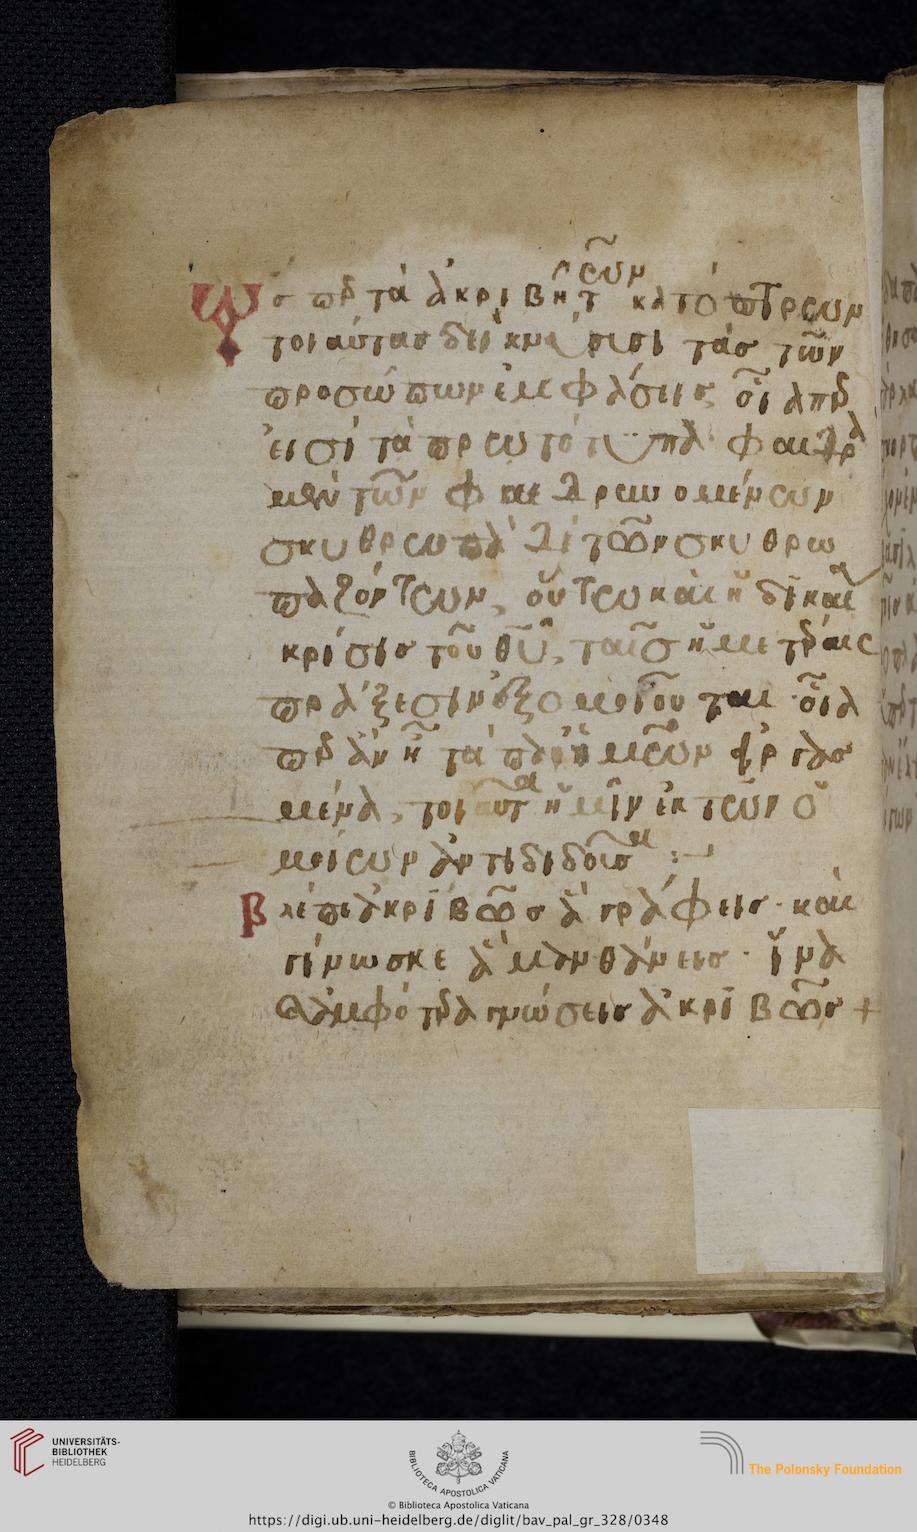 Ὥσπερ τὰ ἀκριβῆ τῶν κατόπτρων
τοιαύτας δεικνύουσι τὰς τῶν
προσώπων ἐμφάσεις, οἷαπερ
εἰσὶ τὰ πρωτότυπα φαιδρὰ
μὲν τῶν φαιδρων
σκυθρωπὰ δὲ τῶν σκυθρω
παζόντων, οὕτω καὶ ἡ δικαία
κρίσις τοῦ θυ, ταῖς ἡμετέραις
πράξεσιν ἐξομοιοῦται· οἷα
περ ἂν ᾖ τὰ παρ' ἡμῶν εἰργασ
μένα, τοιαῦτα ἡμῖν ἐκ τῶν ὁ
μοίων ἀντιδίδωσι :–
Βλέπε ἀκριβῶς ἃ γράφεις· καὶ
γίνωσκε ἃ μανθάνεις· ἵνα
ἀμφότερα γνώσεις ἀκριβῶς +
UNIVERSITÄTS-
BIBLIOTHEK
HEIDELBERG
BIBLIOTECA APOSTOLICA VATICANA
The Polonsky Foundation
© Biblioteca Apostolica Vaticana
https://digi.ub.uni-heidelberg.de/diglit/bav_pal_gr_328/0348